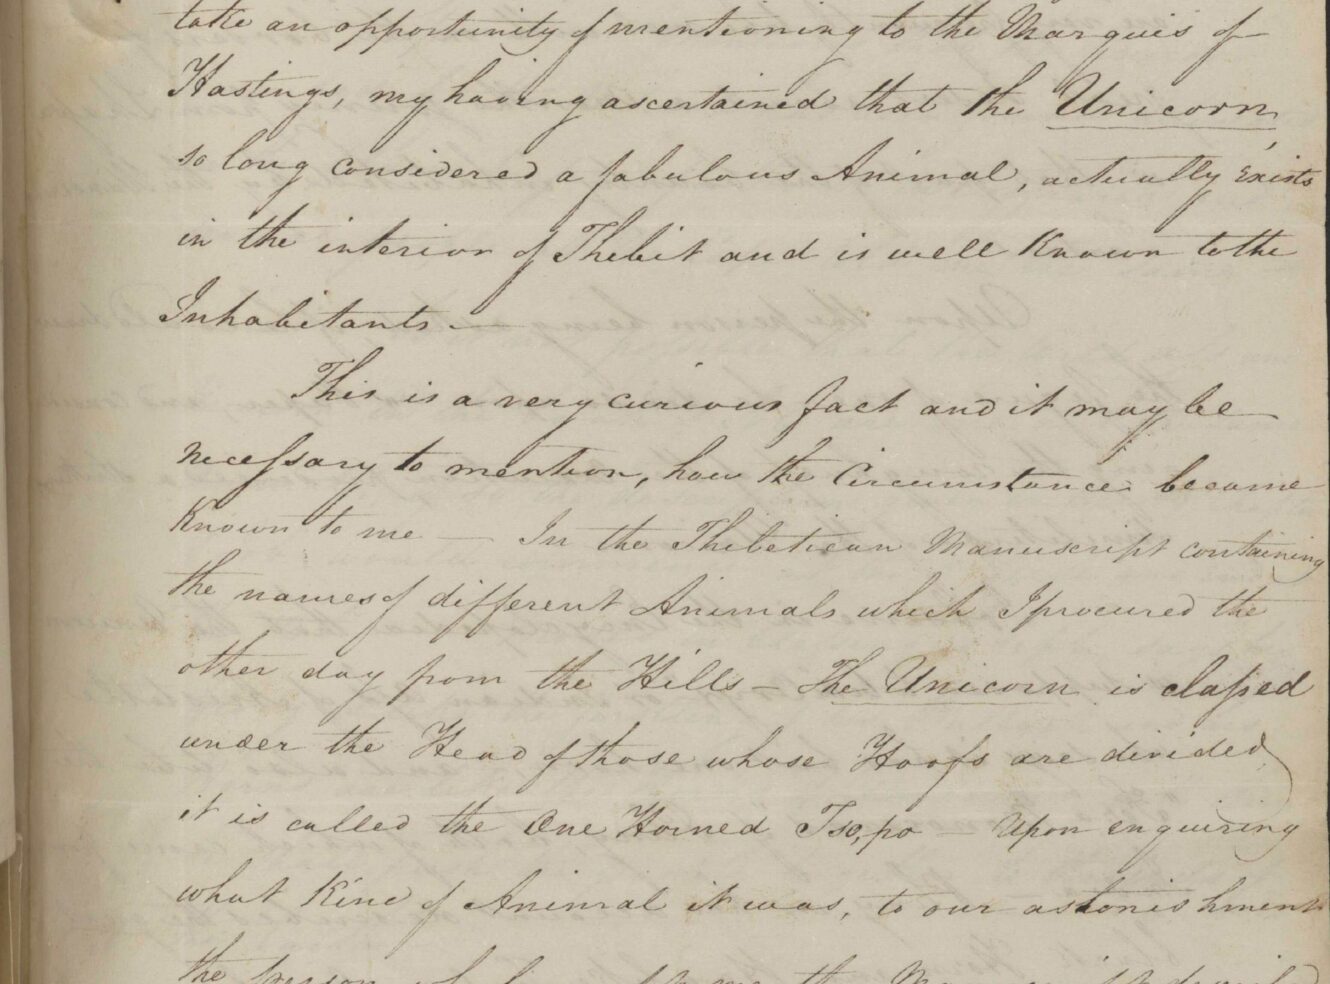 take an opportunity of mentioning to the Marquis of
Hastings, my having ascertained that the Unicorn,
so long considered a fabulous Animal, actually Exists
in the interior of Thibit and is well Known to the
Inhabitants —
This is a very curious fact and it may be
necessary to mention, how the Circumstance became
Known to me — In the Thibetican Manuscript containing
the names of different Animals which I procured the
other day from the Hills — The Unicorn is classed
under the Head of those whose Hoofs are divided,
it is called the One Horned Tso,po — Upon enquiring
what Kind of Animal it was, to our astonishment
the person who